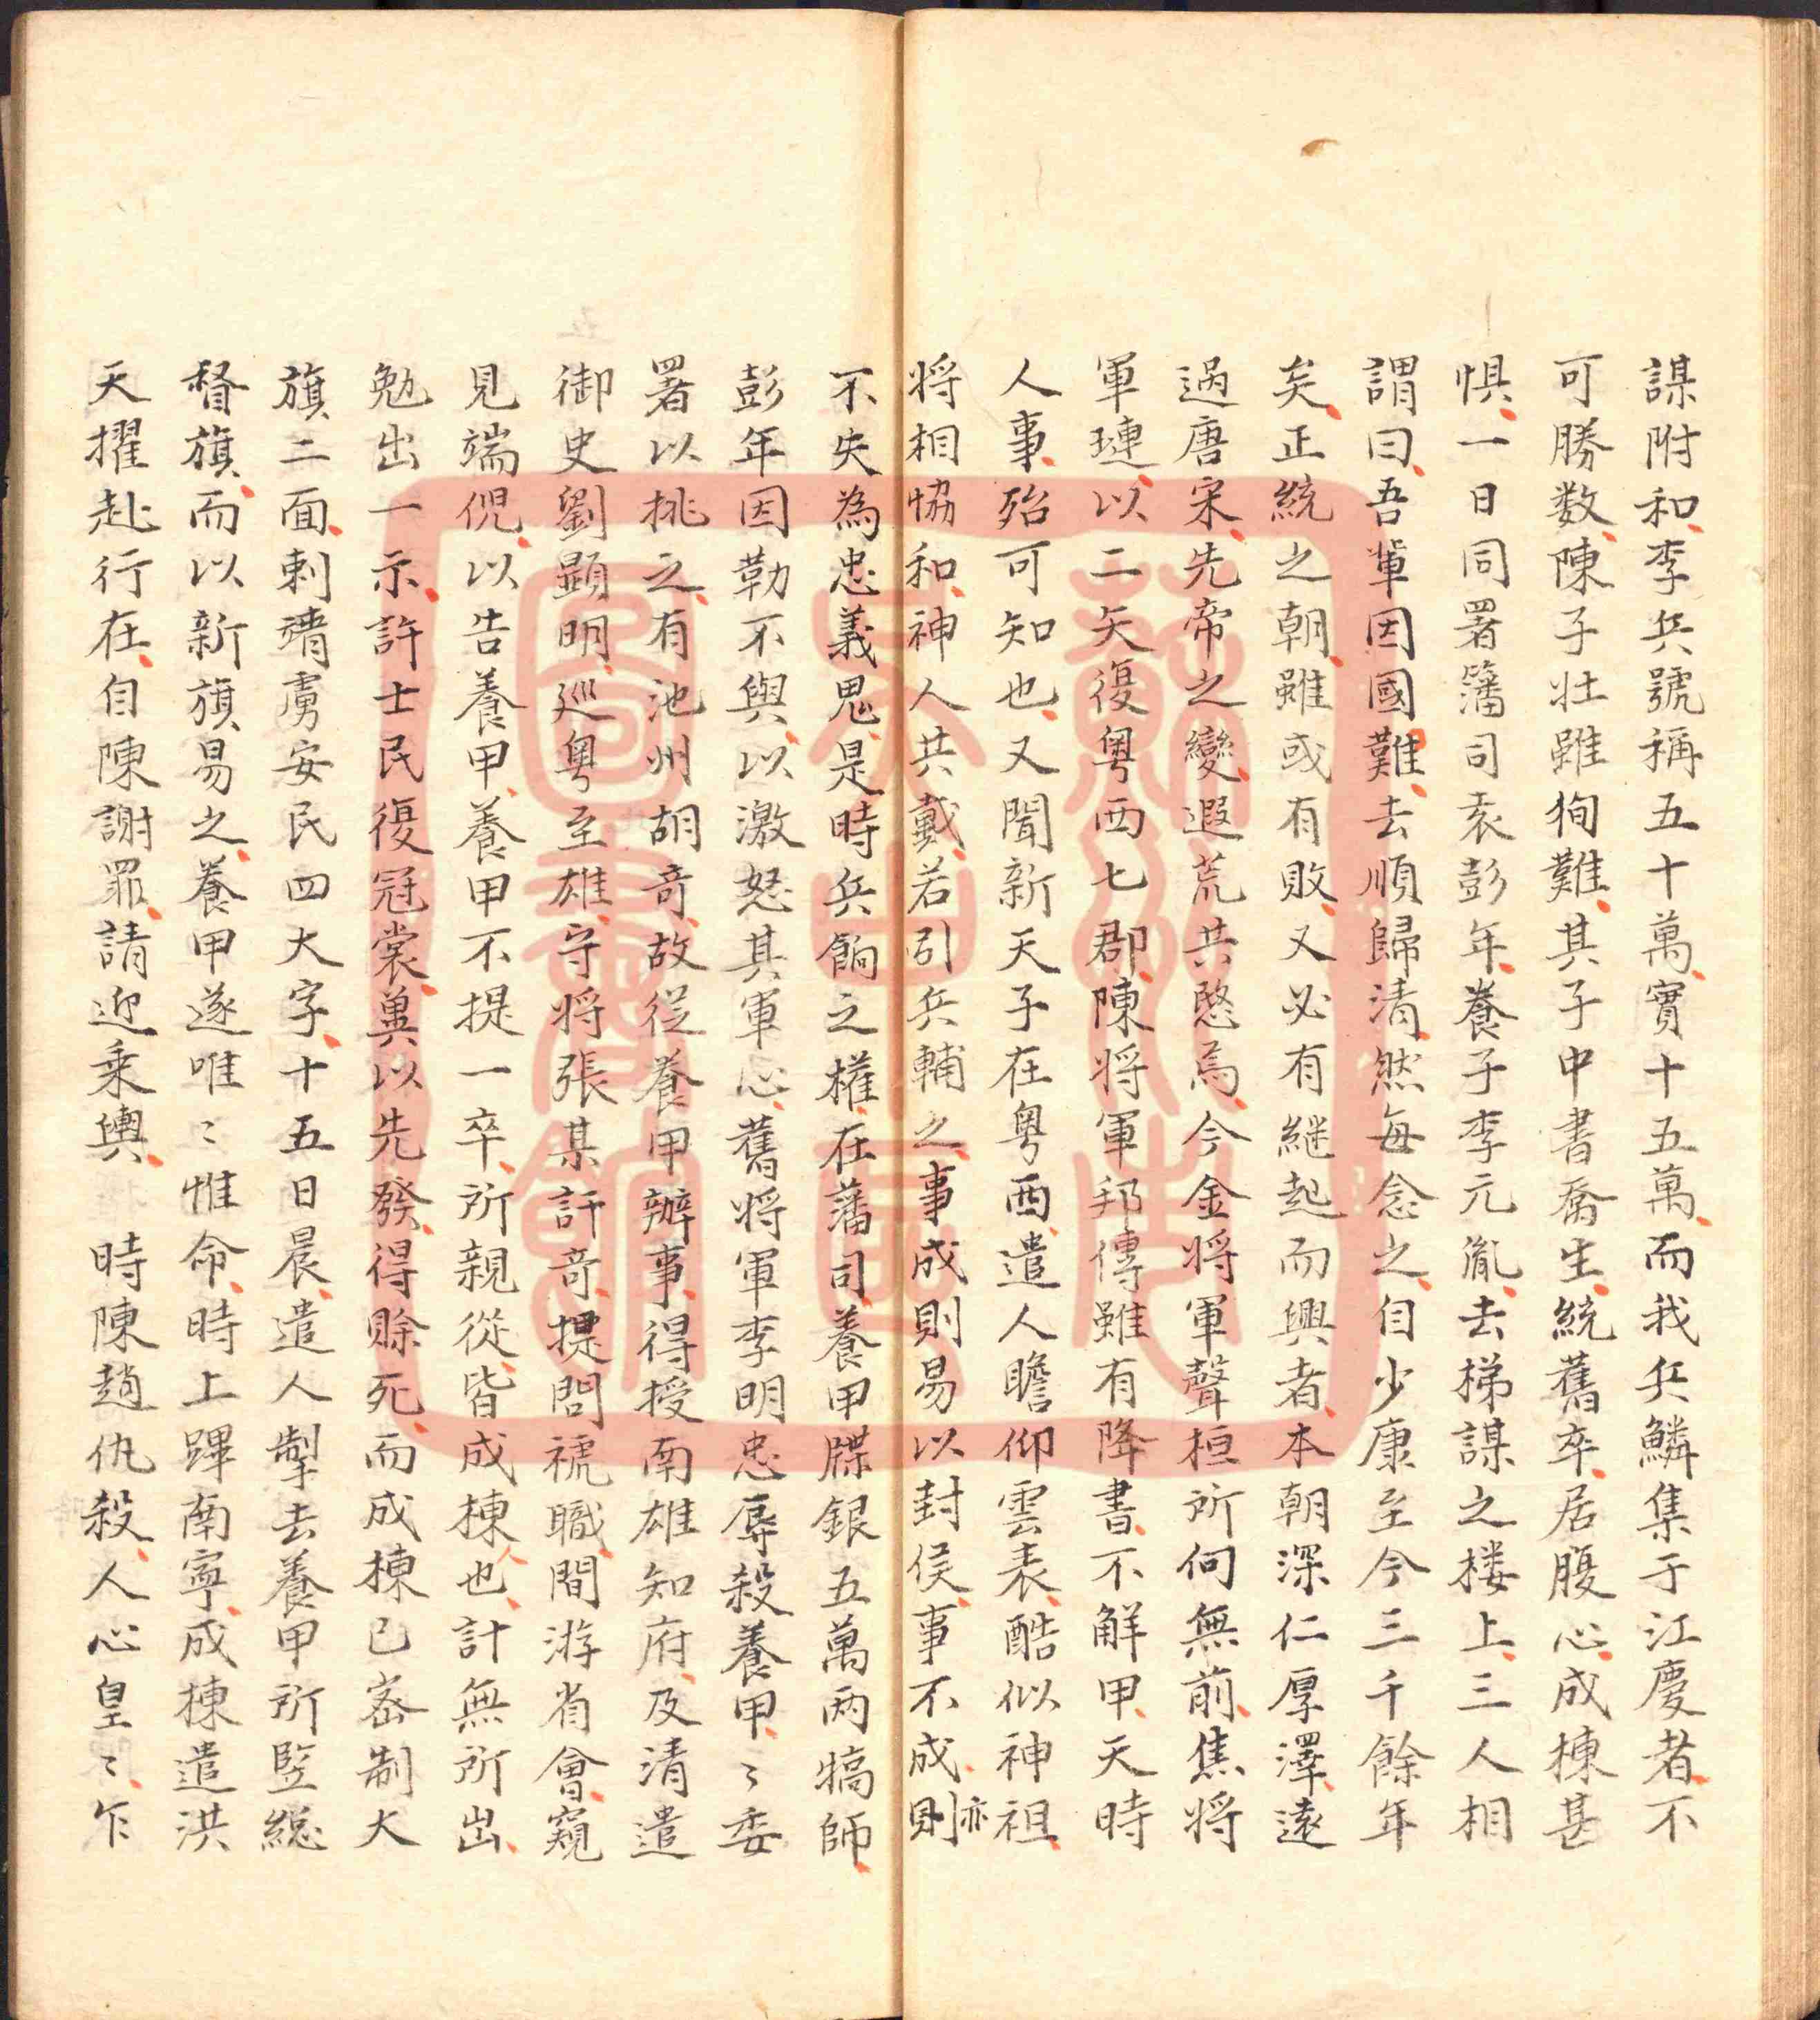 謀附和李兵號稱五十萬實十五萬而我兵鱗集于江慶者不
可勝数陳子壯雖徇難其子中書喬生統舊卒居腹心成棟甚
惧一日同署籓司袁彭年養子李元胤去梯謀之楼上三人相
謂曰吾軰因國難去順歸清然每念之自少康至今三千餘年
矣正統之朝雖或有敗又必有継起而興者本朝深仁厚澤遠
過唐宋先帝之變遐荒共愍焉今金将軍聲桓所向無前焦将
軍璉以二矢復粤西七郡陳将軍邦傅雖有降書不觧甲天時
人事殆可知也又聞新天子在粤西遣人瞻仰雲表酷似神祖
将相恊和神人共戴若引兵輔之事成則易以封侯事不成則亦
不失為忠義鬼是時兵餉之權在藩司養甲牒銀五萬两犒師
彭年因勒不與以激怒其軍心舊将軍李明忠辱殺養甲〻委
署以挑之有池州胡竒故從養甲辦事得授南雄知府及清遣
御史劉顯明巡粤至雄守将張某訐竒提問禠職間游省會窺
見端倪以告養甲養甲不提一卒所親從皆成棟也計無所出
勉出一示許士民復冠裳兾以先發得賖死而成棟已宻制大
旗二面刺靖虏安民四大字十五日晨遣人掣去養甲所竪総
督旗而以新旗易之養甲遂唯〻惟命時上蹕南寧成棟遣洪
天擢赴行在自陳謝罪請迎乘輿 時陳趙仇殺人心皇〻乍